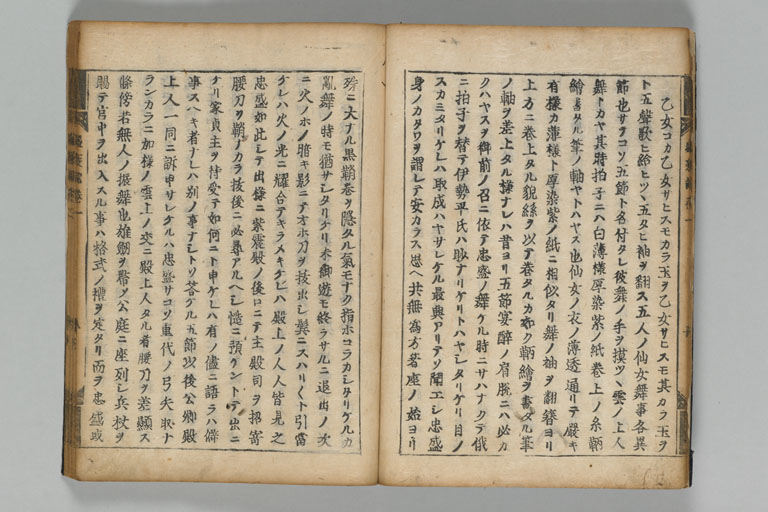 乙女コカ乙女サヒスモカラ玉ヲ乙女サヒスモ其カラ玉ヲ
ト五聲歌ヒ給ヒツヽ五タヒ袖ヲ翻ス五人ノ仙女舞事各異
節也サテコソ五節ト名付タレ彼舞ノ手ヲ摸ツヽ雲ノ上人
舞トカヤ其時拍子ニハ白薄様厚染紫ノ紙巻上ノ糸鞆
繪書タル筆ノ軸ヤトハヤス也仙女ノ衣ノ薄透通リテ嚴キ
有様カ薄様ト厚染紫ノ紙ニ相似タリ舞ノ袖ヲ翻簪ヨリ
上方ニ巻上タル貌絲ヲ以テ巻タルカ如ク鞆繪ヲ書タル筆
ノ軸ヲ差上タル様ナレハ昔ヨリ五節宴醉ノ肩脱ニハ必カ
クハヤスヲ御前ノ召ニ依テ忠盛ノ舞ケル時ニサハナクテ俄
ニ拍子ヲ替テ伊勢平氏ハ眇ナリケリトハヤシタリケリ目ノ
スカミタリケレハ取成ハヤサレケル最興アリテソ聞エシ忠盛
身ノカタワヲ謂レテ安カラス思ヘ共無爲方著座ノ始ヨリ
殊ニ大ナル黒鞘巻ヲ隱タル氣モナク指ホコラカシタリケルカ
亂舞ノ時モ猶サシタリケリ未御遊モ終ラサルニ追出ノ次
ニ火ノホノ暗キ影ニテオホ刀ヲ拔出シ鬢ニスハリ〱ト引當
ケレハ火ノ光ニ耀合テキラメキケレハ殿上ノ人人皆見之
忠盛如此シテ出様ニ紫震殿ノ後ロニテ主殿司ヲ招寄
腰刀ヲ鞘ノカラ拔後ニ必尋アルヘシ慥ニ預ケントテ出ニ
ケリ家貞主ヲ待受テ如何ニト申ケレハ有ノ儘ニ語ラハ僻
事スヘキ者ナレハ別ノ事ナシトソ答ケル五節以後公卿殿
上人一同ニ訴申サレケルハ忠盛サコソ重代ノ弓矢取ナ
ランカラニ加様ノ雲上ノ交ニ殿上人タル者腰刀ヲ差顯ス
條傍若無人ノ振舞也雄劔ヲ帶シ公庭ニ座列シ兵杖ヲ
賜テ官中ヲ出入スル事ハ格式ノ禮ヲ定タリ而ヲ忠盛或